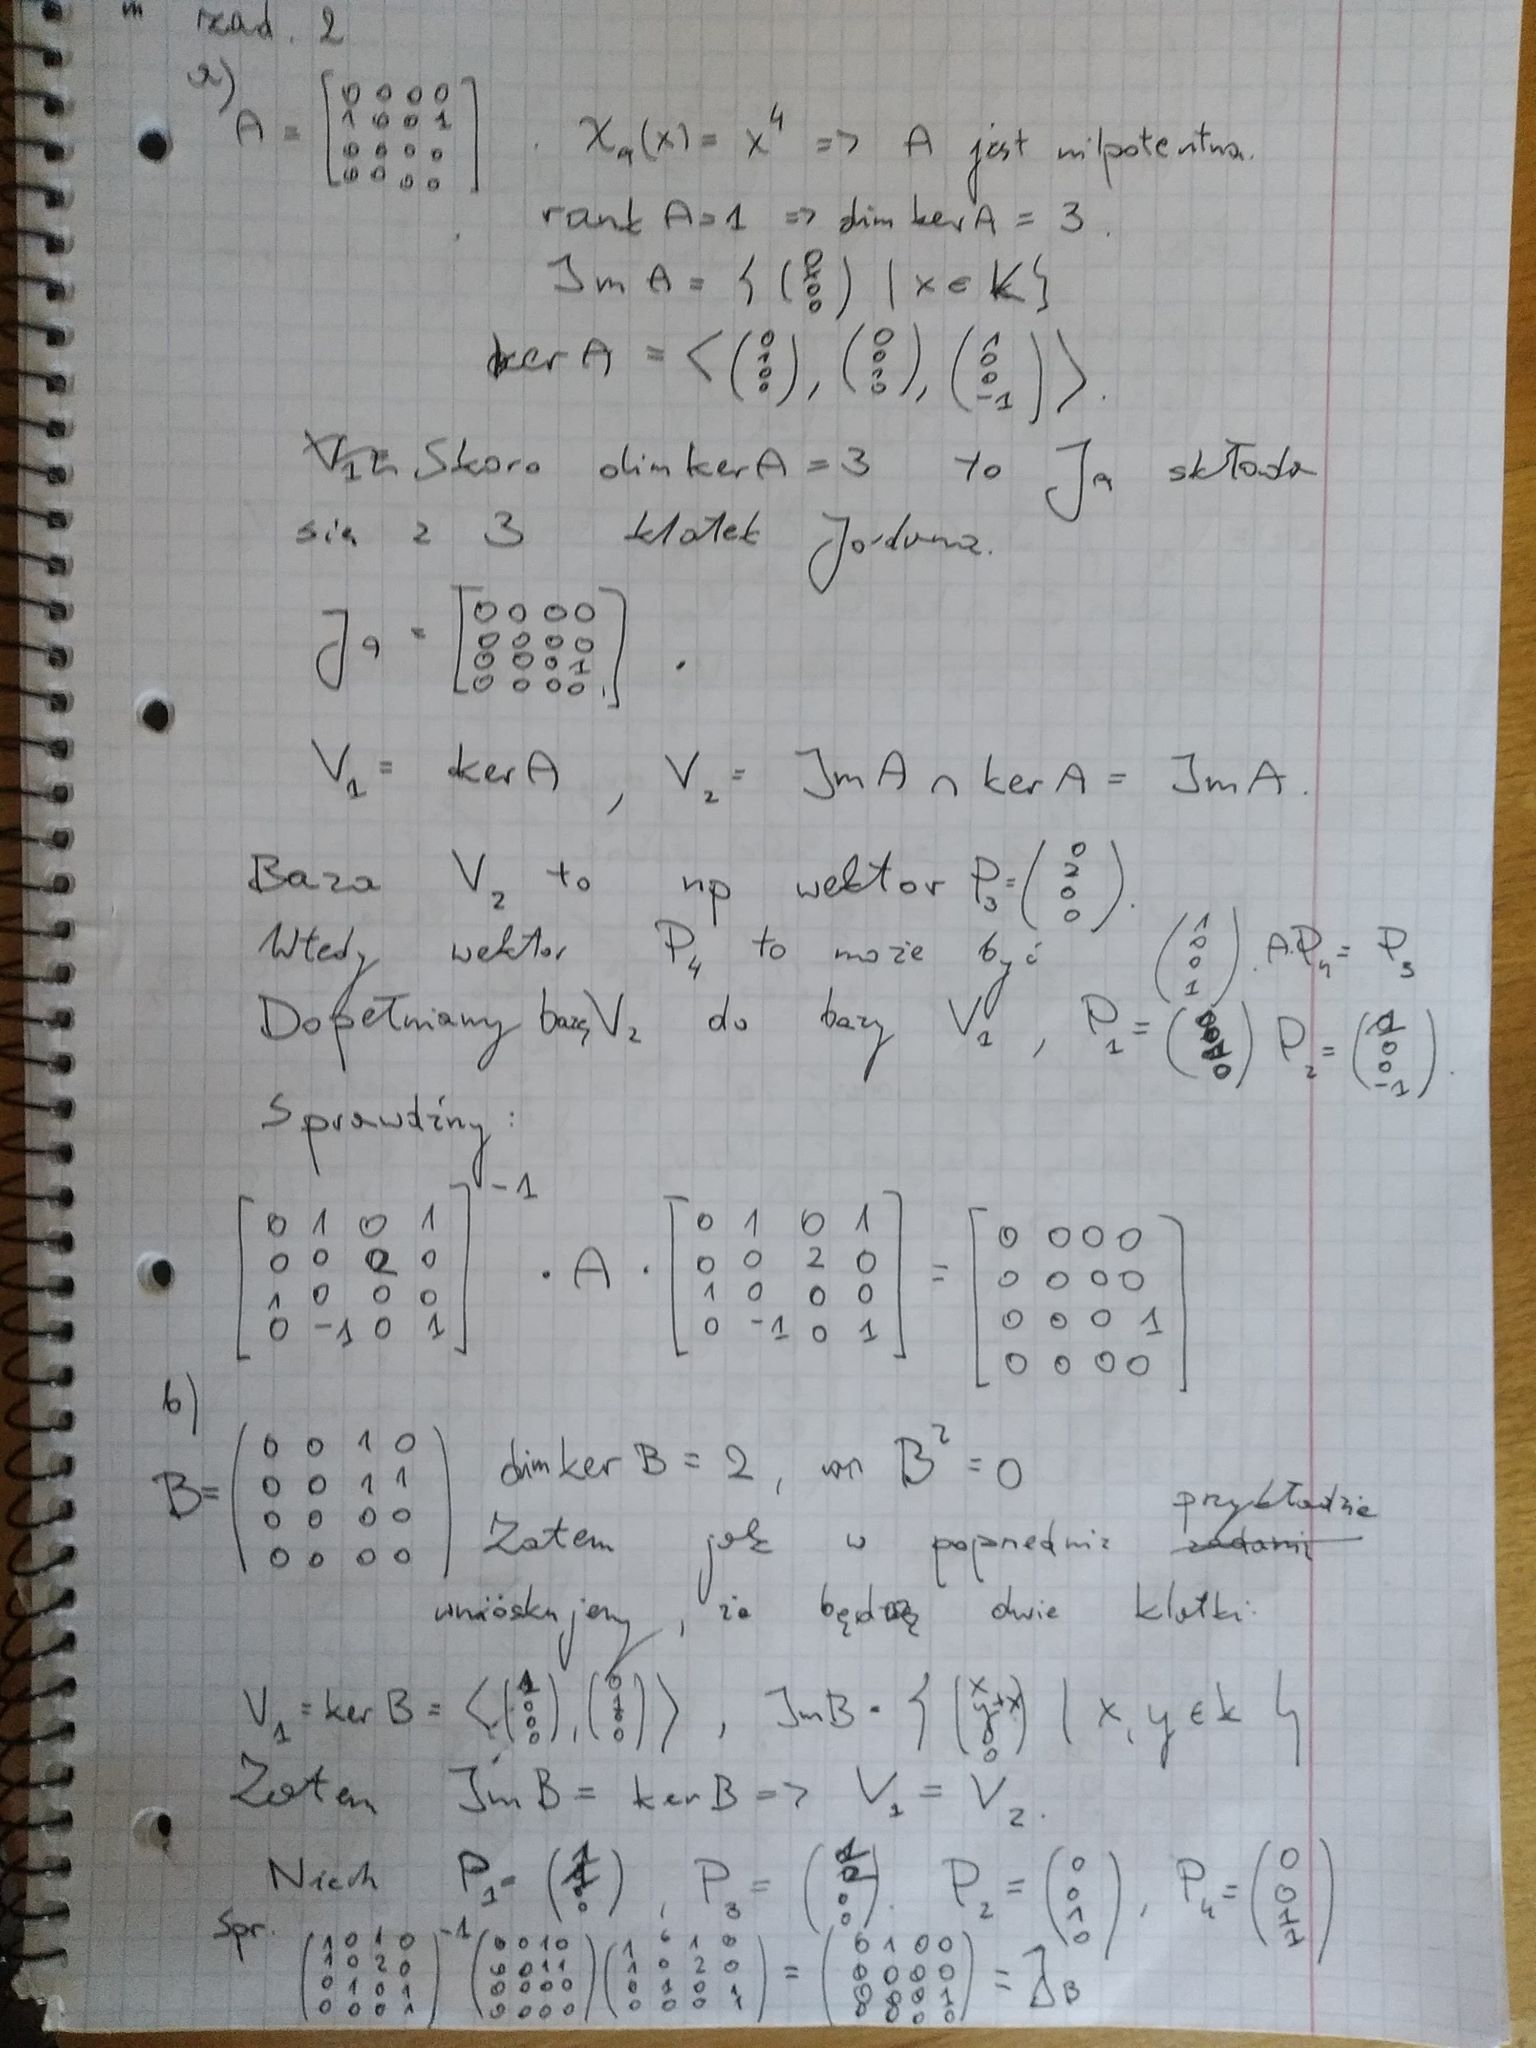 zad. 2
a)
A = [0 0 0 0; 1 0 0 1; 0 0 0 0; 0 0 0 0] . χ_a(x) = x⁴ => A jest nilpotentna.
rank A = 1 => dim ker A = 3.
Im A = { (0 x 0 0) | x ∈ K }
ker A = < (0 1 0 0), (0 0 1 0), (1 0 0 -1) >.
Skoro dim ker A = 3 to J_a składa
się z 3 klatek Jordana.
J_a = [0 0 0 0; 0 0 0 0; 0 0 0 1; 0 0 0 0] .
V₁ = ker A , V₂ = Im A ∩ ker A = Im A.
Baza V₂ to np wektor P₃ = (0 2 0 0).
Wtedy wektor P₄ to może być (1 0 0 1). A·P₄ = P₃
Dopełniamy bazę V₂ do bazy V₁ , P₁ = (0 0 1 0) P₂ = (1 0 0 -1).
Sprawdźmy:
[0 1 0 1; 0 0 2 0; 1 0 0 0; 0 -1 0 1]⁻¹ · A · [0 1 0 1; 0 0 2 0; 1 0 0 0; 0 -1 0 1] = [0 0 0 0; 0 0 0 0; 0 0 0 1; 0 0 0 0]
b)
B = (0 0 1 0; 0 0 1 1; 0 0 0 0; 0 0 0 0) dim ker B = 2, B² = 0
Zatem jak w poprzednim przykładzie
wnioskujemy, że będą dwie klatki.
V₁ = ker B = < (1 0 0 0), (0 1 0 0) > , Im B = { (x y+x 0 0) | x, y ∈ k }
Zatem Im B = ker B => V₁ = V₂.
Niech P₁ = (1 1 0 0) , P₃ = (1 2 0 0). P₂ = (0 0 1 0) , P₄ = (0 0 1 1)
Spr. (1 0 1 0; 1 0 2 0; 0 1 0 1; 0 0 0 1)⁻¹ (0 0 1 0; 0 0 1 1; 0 0 0 0; 0 0 0 0) (1 0 1 0; 1 0 2 0; 0 1 0 1; 0 0 0 1) = (0 1 0 0; 0 0 0 0; 0 0 0 1; 0 0 0 0) = J_B